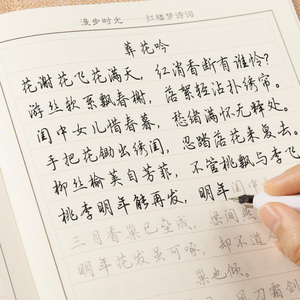 漫步时光 红楼梦诗词
葬花吟
花谢花飞花满天，红消香断有谁怜？
游丝软系飘春榭，落絮轻沾扑绣帘。
闺中女儿惜春暮，愁绪满怀无释处。
手把花锄出绣闺，忍踏落花来复去。
柳丝榆荚自芳菲，不管桃飘与李飞
桃李明年能再发，明年闺中
三月香巢已垒成，梁间燕
明年花发虽可啄，却不道人
巢也倾。
风刀霜剑